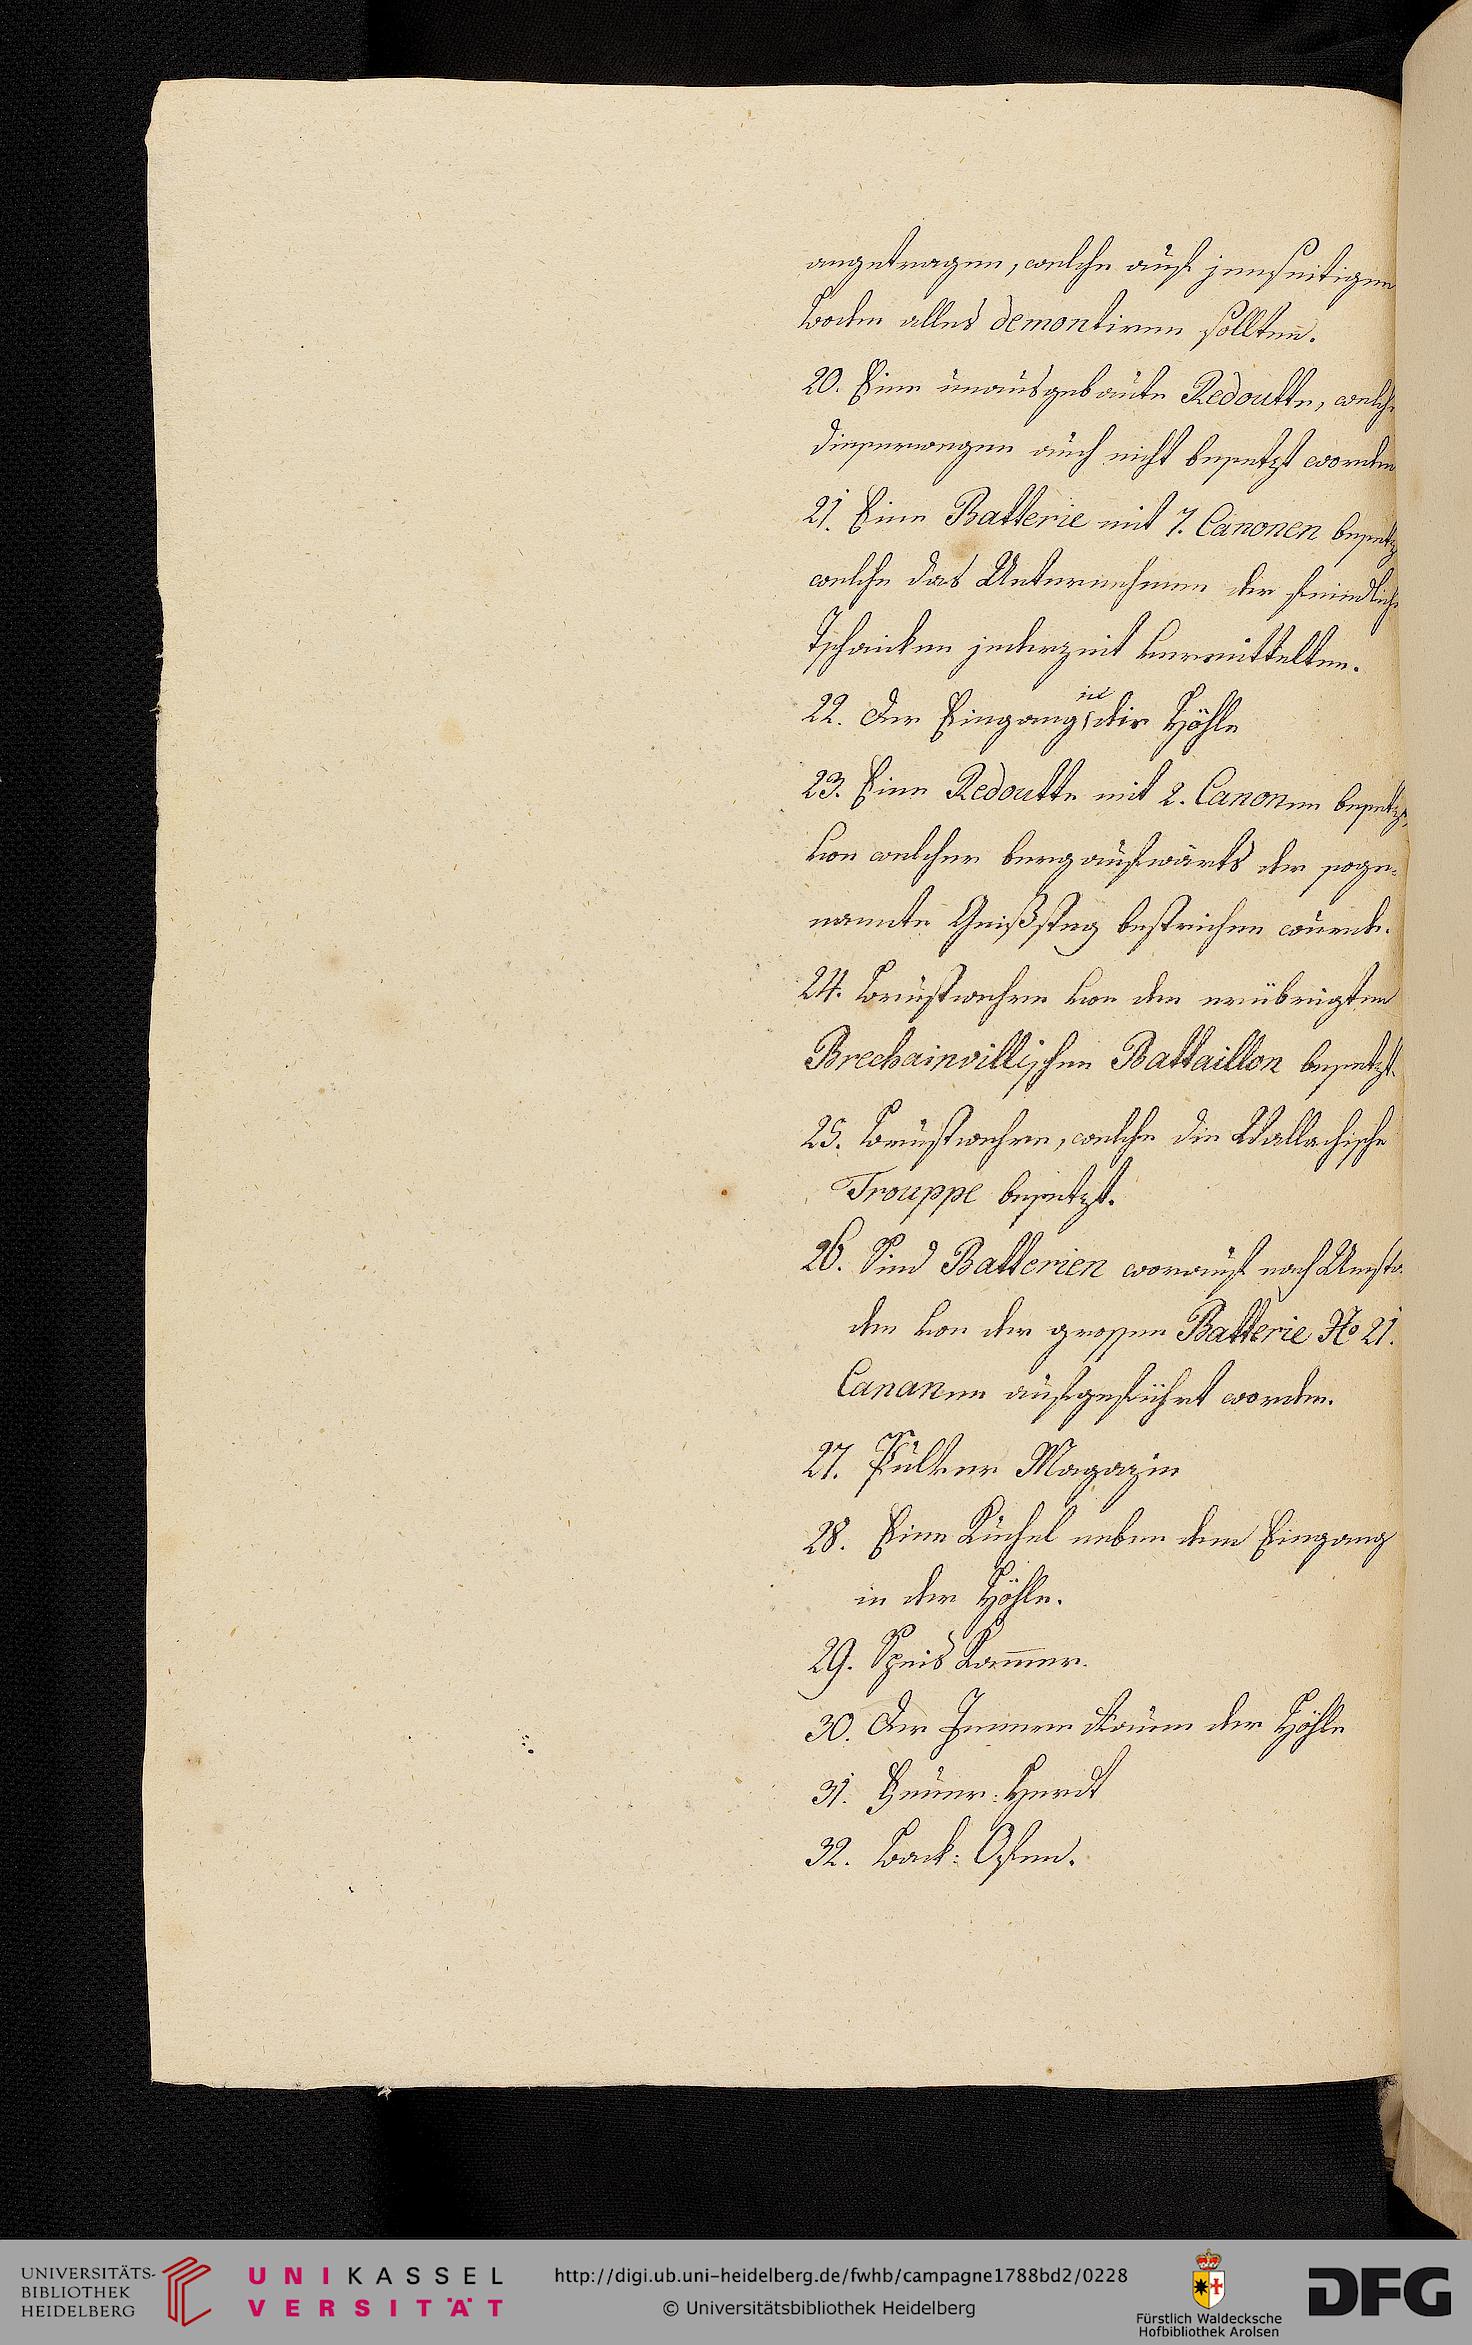 angetragen, welche auf jenseitigen
Boden alles demontiren sollten.
20. Eine unausgebaute Redoutte, welche
dieserwegen auch nicht besetzt worden
21. Eine Batterie mit 7. Canonen besetz
welche das Unternehmen der feindlich
Tschaicken jederzeit vermittelten.
22. Der Eingang in die Höhle
23. Eine Redoutte mit 2. Canonen besetzt,
von welcher bergaufwärts der soge-
nannte Geißsteg bestrichen wurde.
24. Brustwehre von den erübrigten
Brechainvillischen Battaillon besetzt.
25. Brustwehre, welche die Wallachische
Trouppe besetzt.
26. Sind Batterien worauf nach Umstä
den von der grossen Batterie No 21.
Cananen aufgeführt worden.
27. Pulver Magazin
28. Eine Kuchel neben dem Eingang
in der Höhle.
29. Speis Kammer.
30. Der Innere Raum der Höhle
31. Feuer-Herdt
32. Back-Ofen.
UNIVERSITÄTS-
BIBLIOTHEK
HEIDELBERG
UNIKASSEL
VERSITÄT
http://digi.ub.uni-heidelberg.de/fwhb/campagne1788bd2/0228
© Universitätsbibliothek Heidelberg
Fürstlich Waldecksche
Hofbibliothek Arolsen
DFG